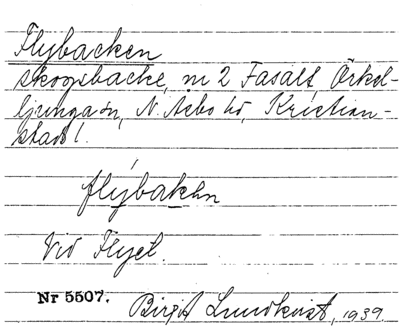 Flybacken
skogsbacke, nr 2 Fasalt Örkel-
ljunga sn, N. Åsbo hd, Kristian-
stads l.
flýbakən
Vid Flyet.
Nr 5507.
Birgit Lundkvist, 1939